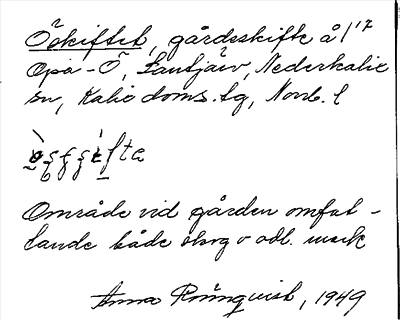 Öskiftet, gårdeskifte å 1¹⁷
Opa-Ö, Santjärv, Nederkalix
sn, Kalix doms.tg, Norrb. l

Område vid gården omfat-
tande både skog o odl. mark
Anna Rönnqvist, 1949